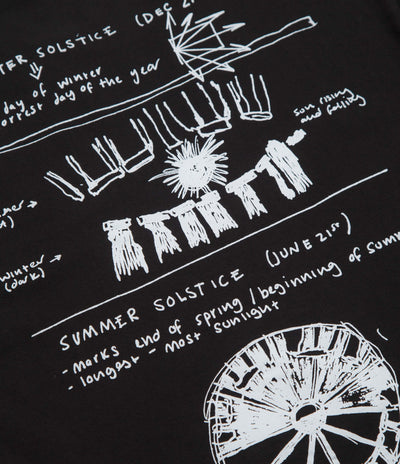 TER SOLSTICE (DEC 21
day of winter
ortest day of the year
sun rising
and falling
mer →
winter →
(dark)
SUMMER SOLSTICE (JUNE 21ST)
- marks end of spring / beginning of summ
- longest - most sunlight